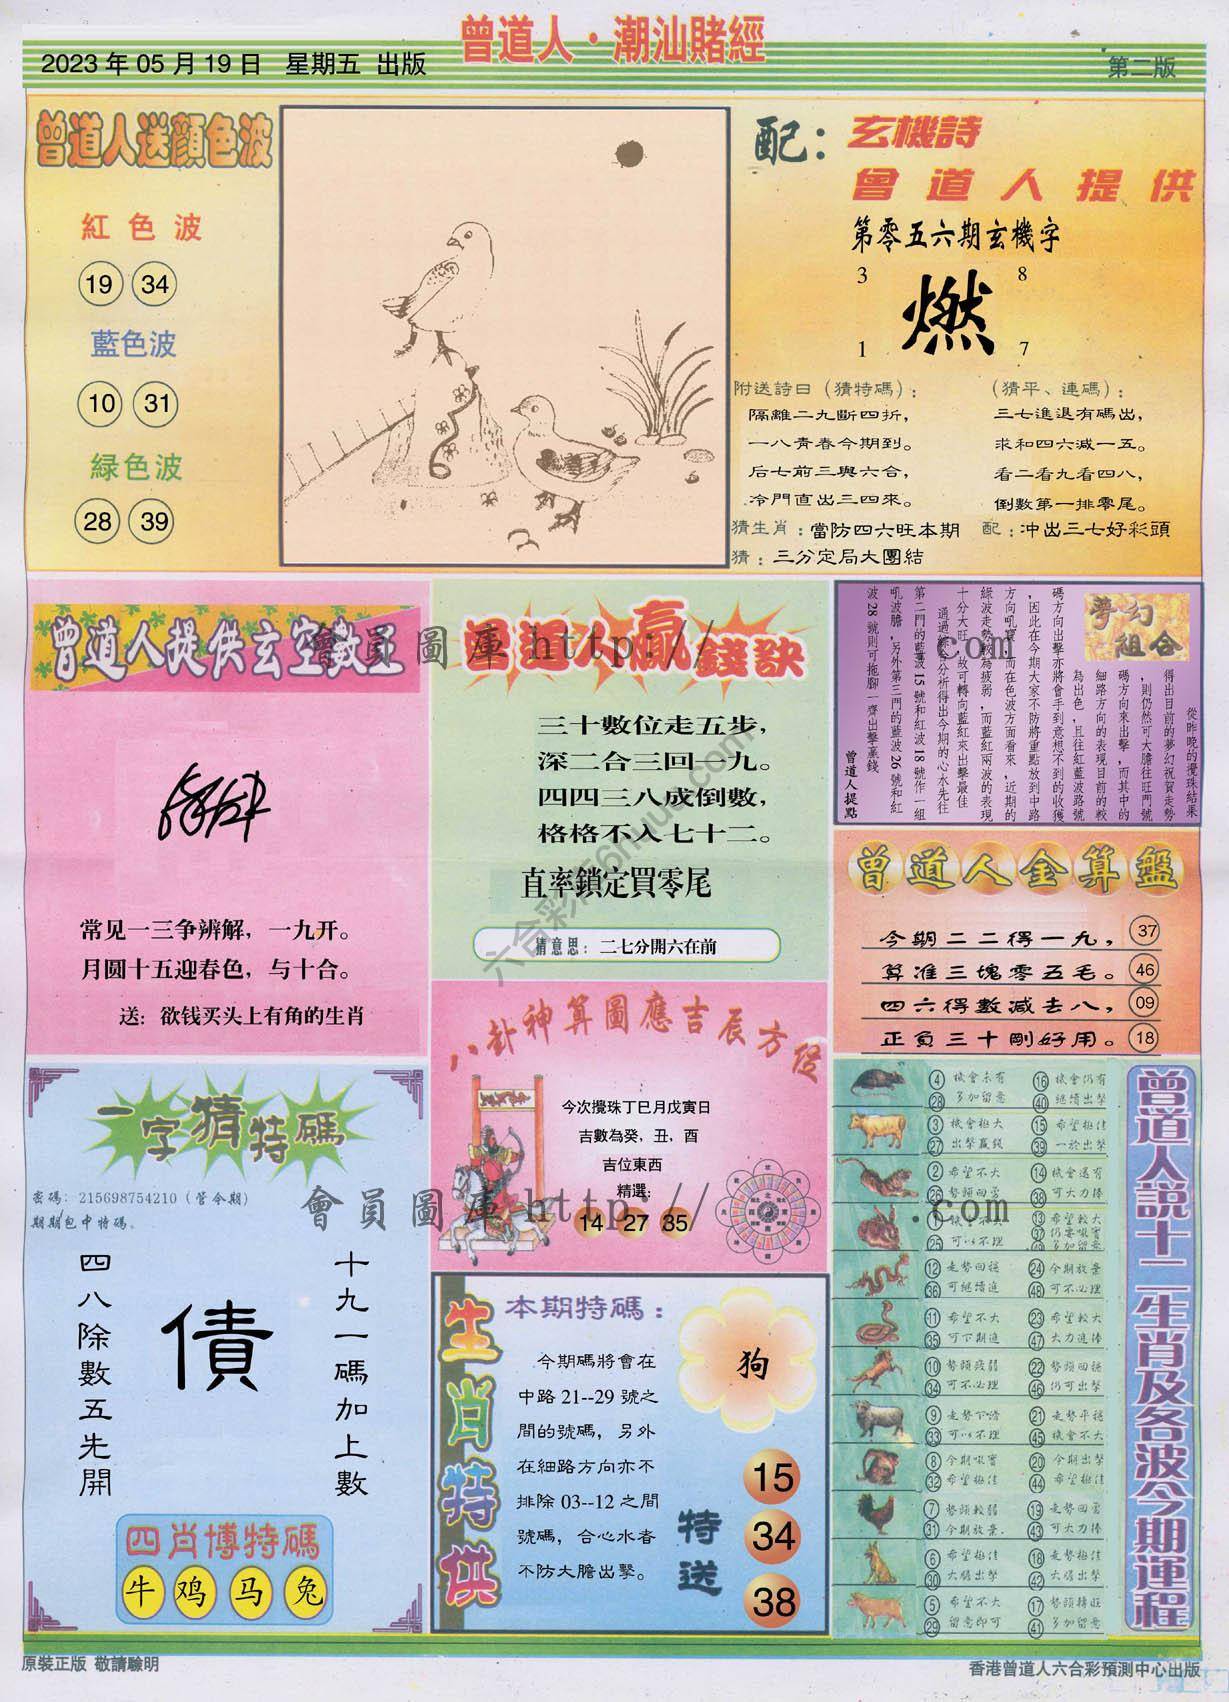 曾道人·潮汕賭經
2023 年 05 月 19 日 星期五 出版
第二版
曾道人送顏色波
紅色波
19 34
藍色波
10 31
緑色波
28 39
配：
玄機詩
曾道人提供
第零五六期玄機字
3 8
燃
1 7
附送詩曰（猜特碼）：
隔離二九斷四折，
一八青春今期到。
后七前三與六合，
冷門直出三四來。
（猜平、連碼）：
三七進退有碼出，
求和四六減一五。
看二看九看四八，
倒數第一排零尾。
猜生肖：當防四六旺本期
配：冲出三七好彩頭
猜：三分定局大團結
曾道人提供玄空數王
常见一三争辨解，一九开。
月圆十五迎春色，与十合。
送：欲钱买头上有角的生肖
曾道人贏錢訣
三十數位走五步，
深二合三回一九。
四四三八成倒數，
格格不入七十二。
直率鎖定買零尾
猜意思：二七分開六在前
夢幻組合
從昨晚的攪珠結果
得出目前的夢幻祝賀走勢
，則仍然可大膽往旺門號
碼方向來出擊，而其中的
細路方向的表現目前的較
為出色，且往紅藍波路號
碼方向出擊亦將會手到意想不到的收獲
，因此在今期大家不防將重點放到中路
方向吼寶，而在色波方面看來，近期的
綠波走勢較為疲弱，而藍紅兩波的表現
十分大旺，故可轉向藍紅來出擊最佳
通過綜合分析得出今期的心水先往
第二門的藍波 15 號和紅波 18 號作一組
吼波膽，另外第三門的藍波 26 號和紅
波 28 號則可拖腳一齊出擊贏錢
曾道人提點
曾道人金算盤
今期二二得一九， 37
算准三塊零五毛。 46
四六得數減去八， 09
正負三十剛好用。 18
會員圖庫 http://
.com
六合彩库6huu.com
八卦神算圖應吉辰方位
今次攪珠丁巳月戊寅日
吉數為癸，丑，酉
吉位東西
精選：
14 27 35
會員圖庫 http://
.com
一字猜特碼
密碼：215698754210（管今期）
期期包中特碼。
十九一碼加上數
債
四八除數五先開
四肖博特碼
牛 鸡 马 兔
生肖特供
本期特碼：
今期碼將會在
中路 21--29 號之
間的號碼，另外
在細路方向亦不
排除 03--12 之間
號碼，合心水者
不防大膽出擊。
狗
特送
15
34
38
曾道人説十二生肖及各波今期運程
4 28 機會未有 多加留意
16 40 機會仍有 繼續出擊
3 27 機會極大 出擊贏錢
15 39 希望極佳 一於出擊
2 26 希望不大 勢頭回勇
14 38 機會還有 可大力捧
1 25 機會不大 可以不理
13 37 49 希望較大 仍要吼實 多加留意
12 36 走勢回穩 可繼續追
24 48 今期放棄 可不必理
11 35 希望不大 可下期追
23 47 希望較大 大力追捧
10 34 勢頭疲弱 可不必理
22 46 勢頭回穩 仍可出擊
9 33 走勢下滑 可以不理
21 45 走勢平穩 機會不大
8 32 今期吼實 希望極佳
20 44 今期出擊 希望極佳
7 31 勢頭較弱 今期放棄.
19 43 走勢回勇 可大力捧
6 30 希望極佳 大膽出擊
18 42 走勢極佳 大膽出擊
5 29 希望不大 留意即可
17 41 勢頭轉旺 多加留意
原裝正版 敬請驗明
香港曾道人六合彩預測中心出版